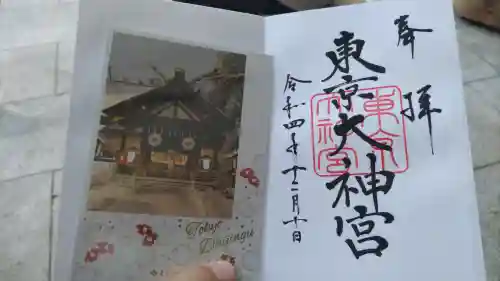 奉拝
東京大神宮
令和四年十二月十日
東京大神宮
Tokyo
Daijingu